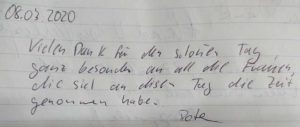 08.03.2020
Vielen Dank für den schönen Tag,
ganz besonders an all die
die sich an diesen Tag die Zeit
genommen habe.